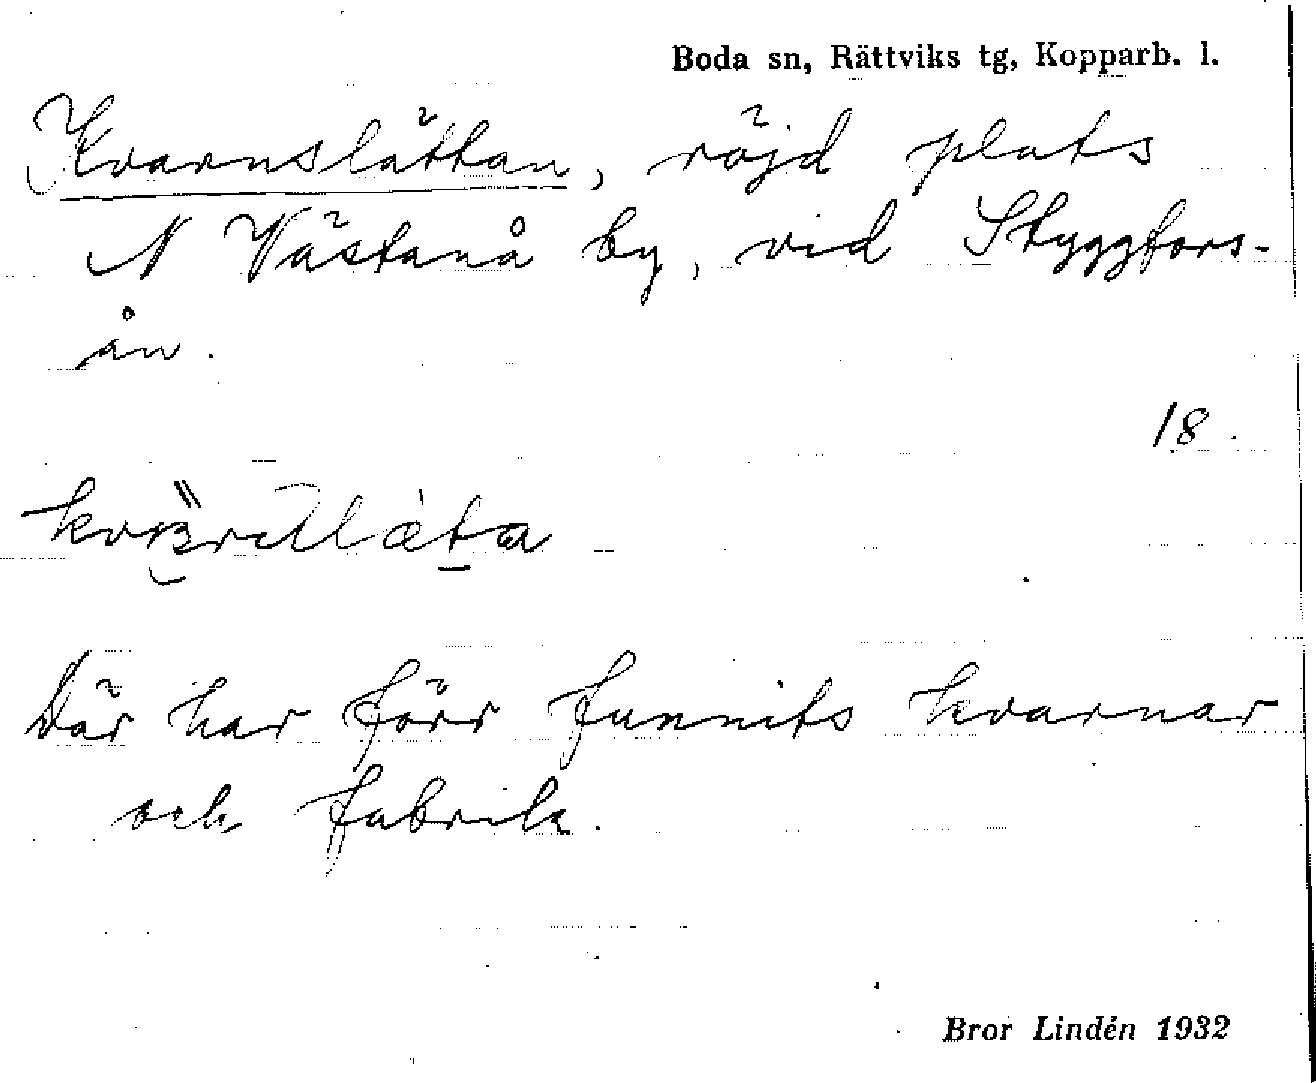 Boda sn, Rättviks tg, Kopparb. l.
Kvarnslättan, röjd plats
N Västanå by, vid Styggfors-
ån.
18.
Där har förr funnits kvarnar
och fabrik.
Bror Lindén 1932